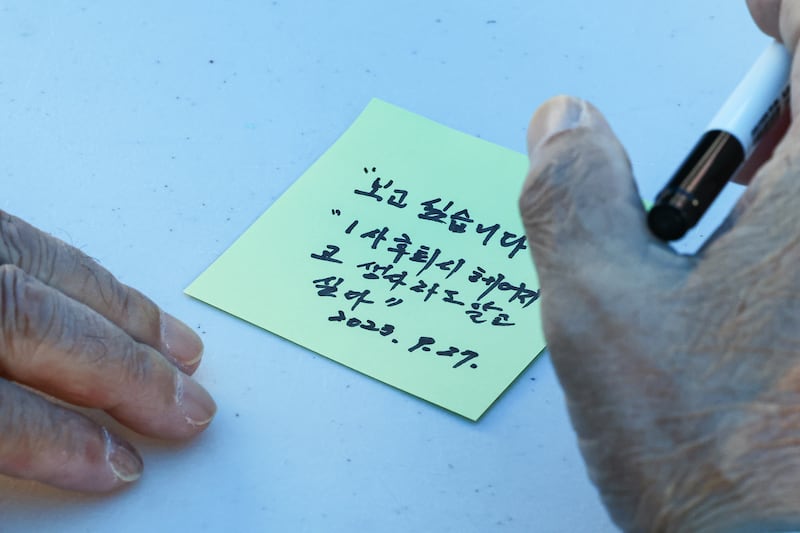 "보고 싶습니다
"1 사후퇴시 헤어지
고 생사라도 알고
싶다"
2025. 9. 27.